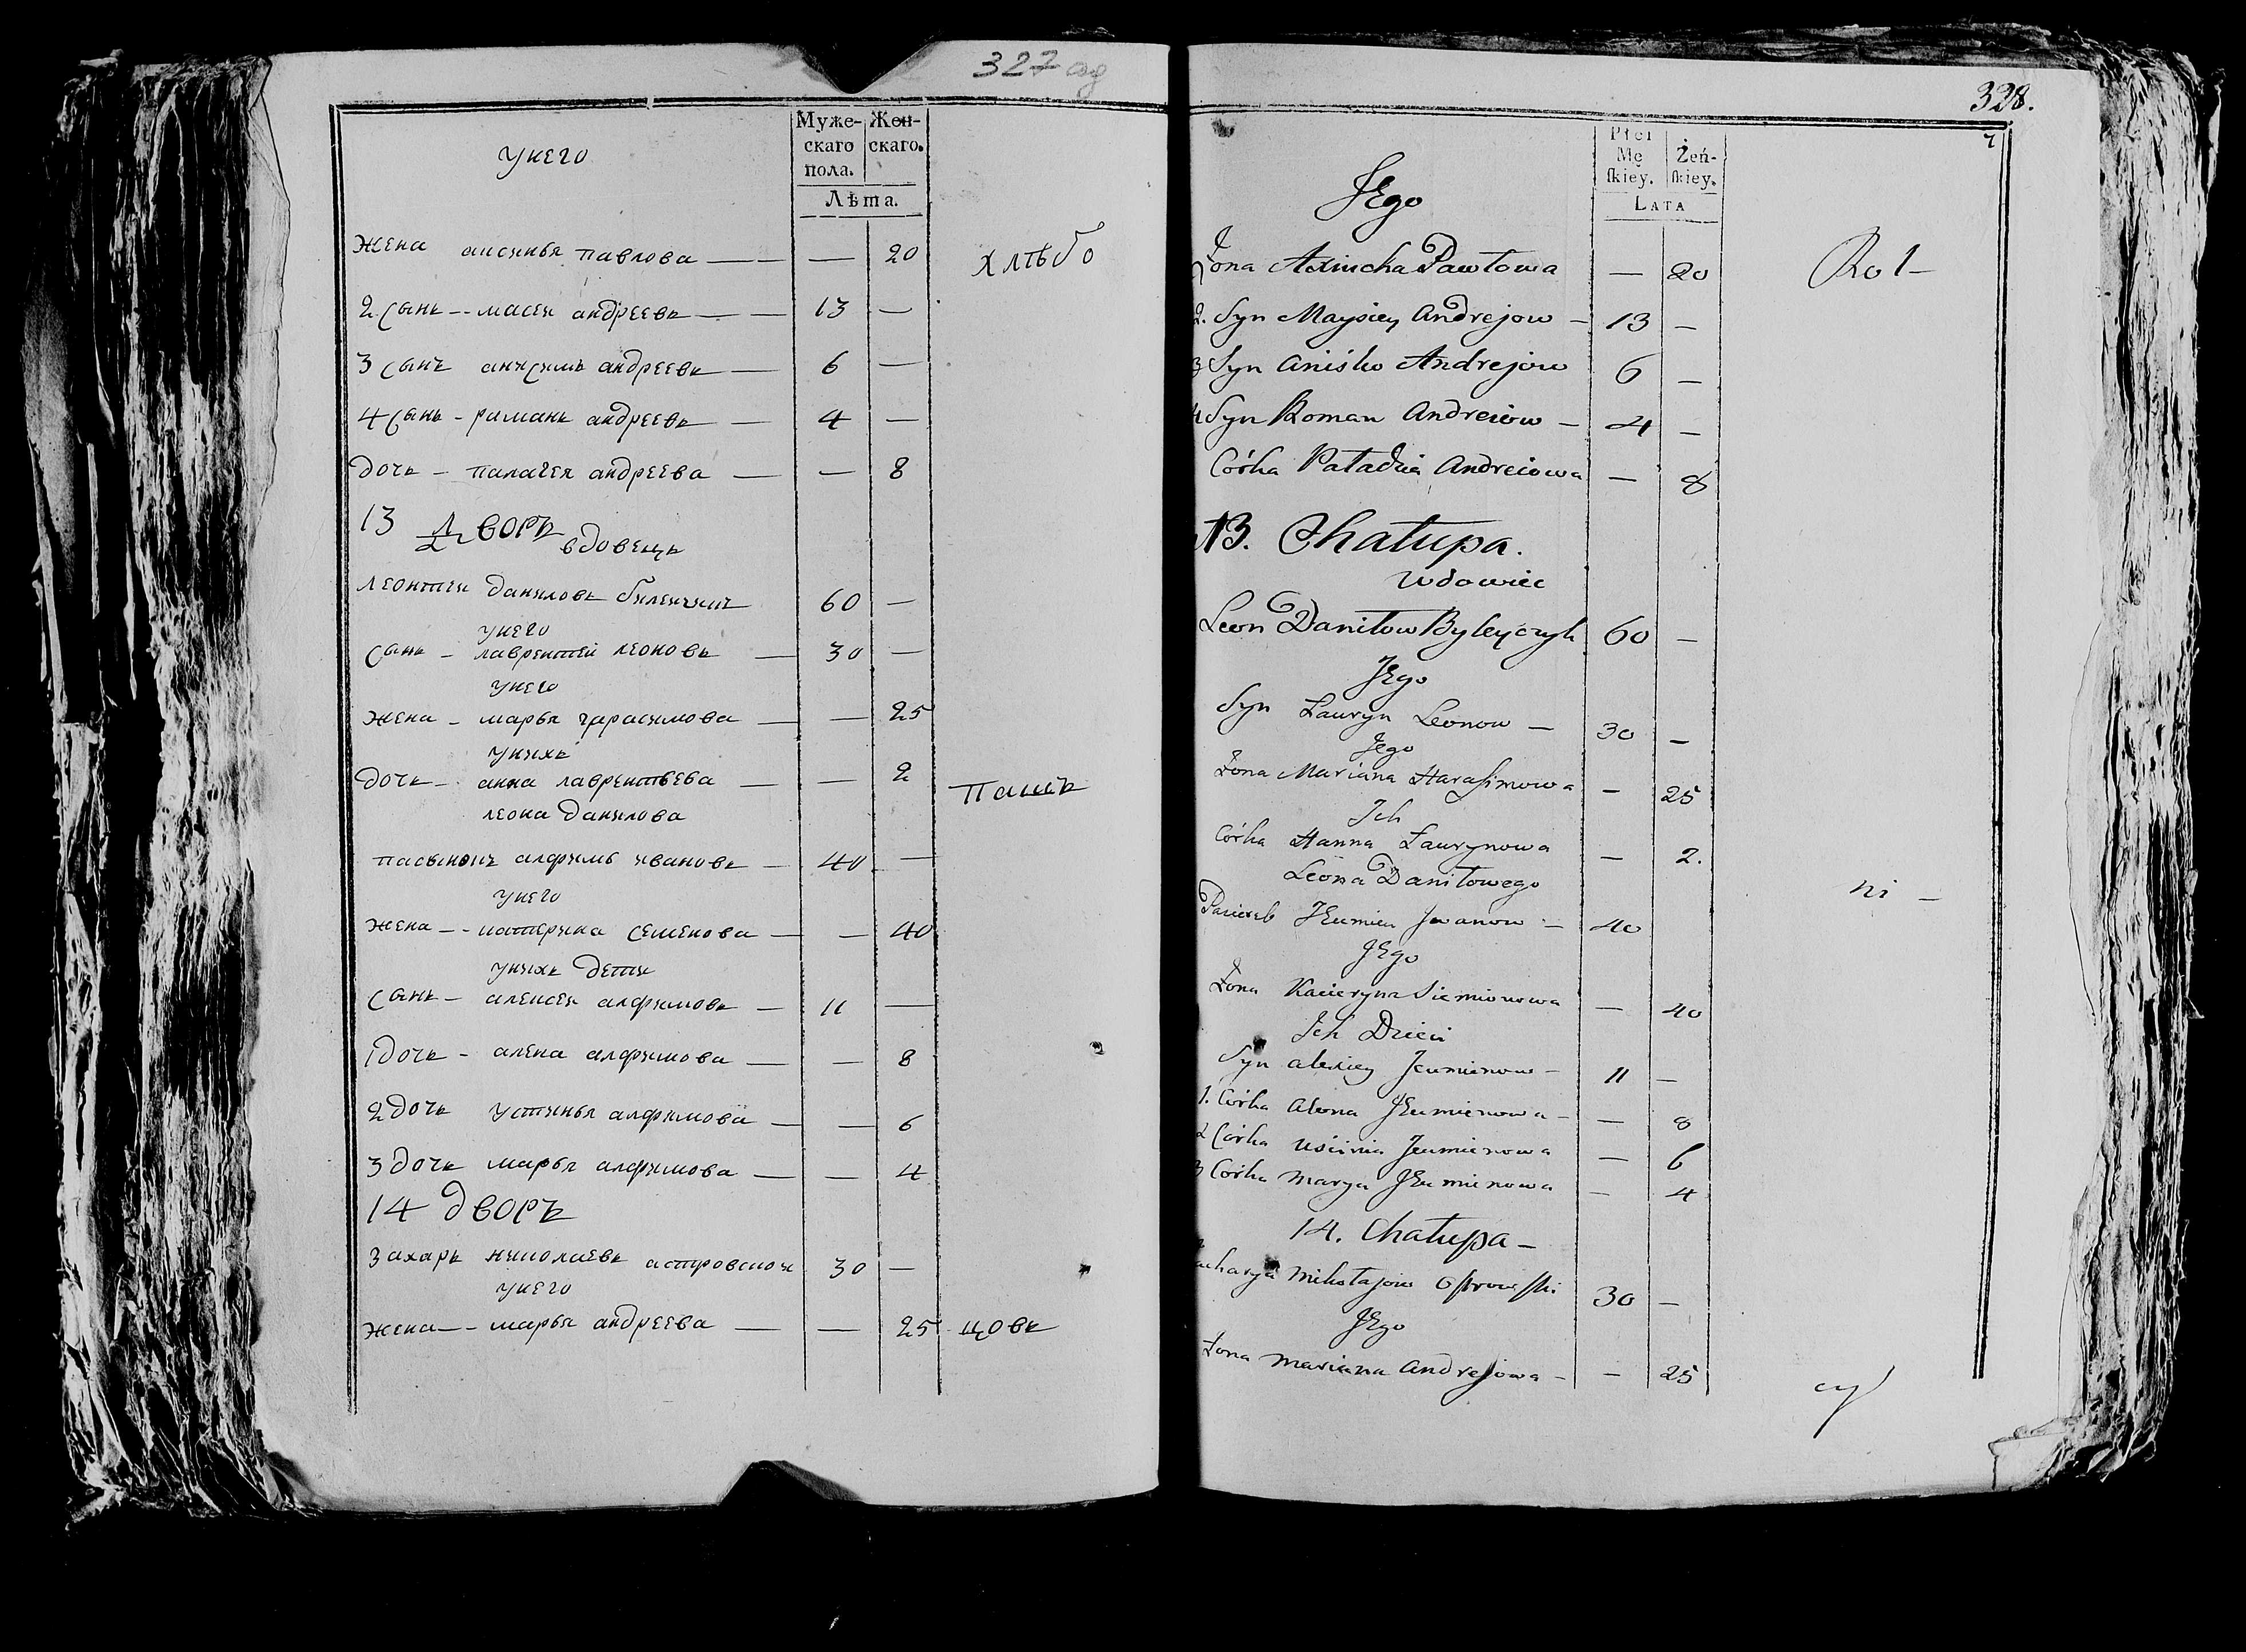 327 об
Муже- Жен-
скаго скаго.
пола.
унего
Лѣта.
Жена аксинья павлова — — — 20 хлѣбо
2 сынъ -- масей андреевъ — — 13 —
3 сынъ анисимъ андреевъ — 6 —
4 сынъ - раманъ андреевъ — 4 —
дочь - палагея андреева — — 8
13 Дворъ
вдовецъ
леонтей даниловъ 60 —
унего
сынъ - лаврентей леоновъ — 30 —
унего
жена - марья гарасимова — — 25
унихъ
дочь - анна лаврентьева — — 2 пашъ
леона данилова
пасынокъ алфимъ ивановъ — 40 —
унего
жена -- катерина семенова — — 40
унихъ дети
сынъ - алексей алфимовъ — 11 —
1 дочь - алена алфимова — — 8
2 дочь устинья алфимова — — 6
3 дочь марья алфимова — — 4
14 дворъ
захаръ николаевъ астровской 30 —
унего
жена -- марья андреева — — 25 цовъ
328.
7
Płci
Mę Żeń-
skiey. skiey.
JEgo
LATA
Żona Axincha Pawłowa — 20 Rol-
2. Syn Maysiey Andrejow - 13 —
3 Syn Aniśko Andrejow 6 —
4 Syn Roman Andreiow - 4 —
Córka Paładia Andreiowa — 8
13. Chałupa.
Wdowiec
Leon Daniłow Byleyczyk 60 —
JEgo
SynŁawryn Leonow — 30 —
Jego
Żona Mariana Harasimowa — 25
Ich
Córka Hanna Ławrynowa — 2.
Leona Daniłowego
Pasierb JEumien Jwanow - 40 ni -
JEgo
Żona Kacieryna Siemionowa — 40
Ich Dzieci
Syn Alexiey Jeumienow - 11 —
1. Córka Alona JEumienowa - — 8
2 Córka Uścinia Jeumienowa — 6
3 Córka Marya JEumienowa — 4
14. Chałupa -
Zacharya Mikołajow Ostrowski 30 —
JEgo
Żona Mariana Andrejowa - — 25 cy